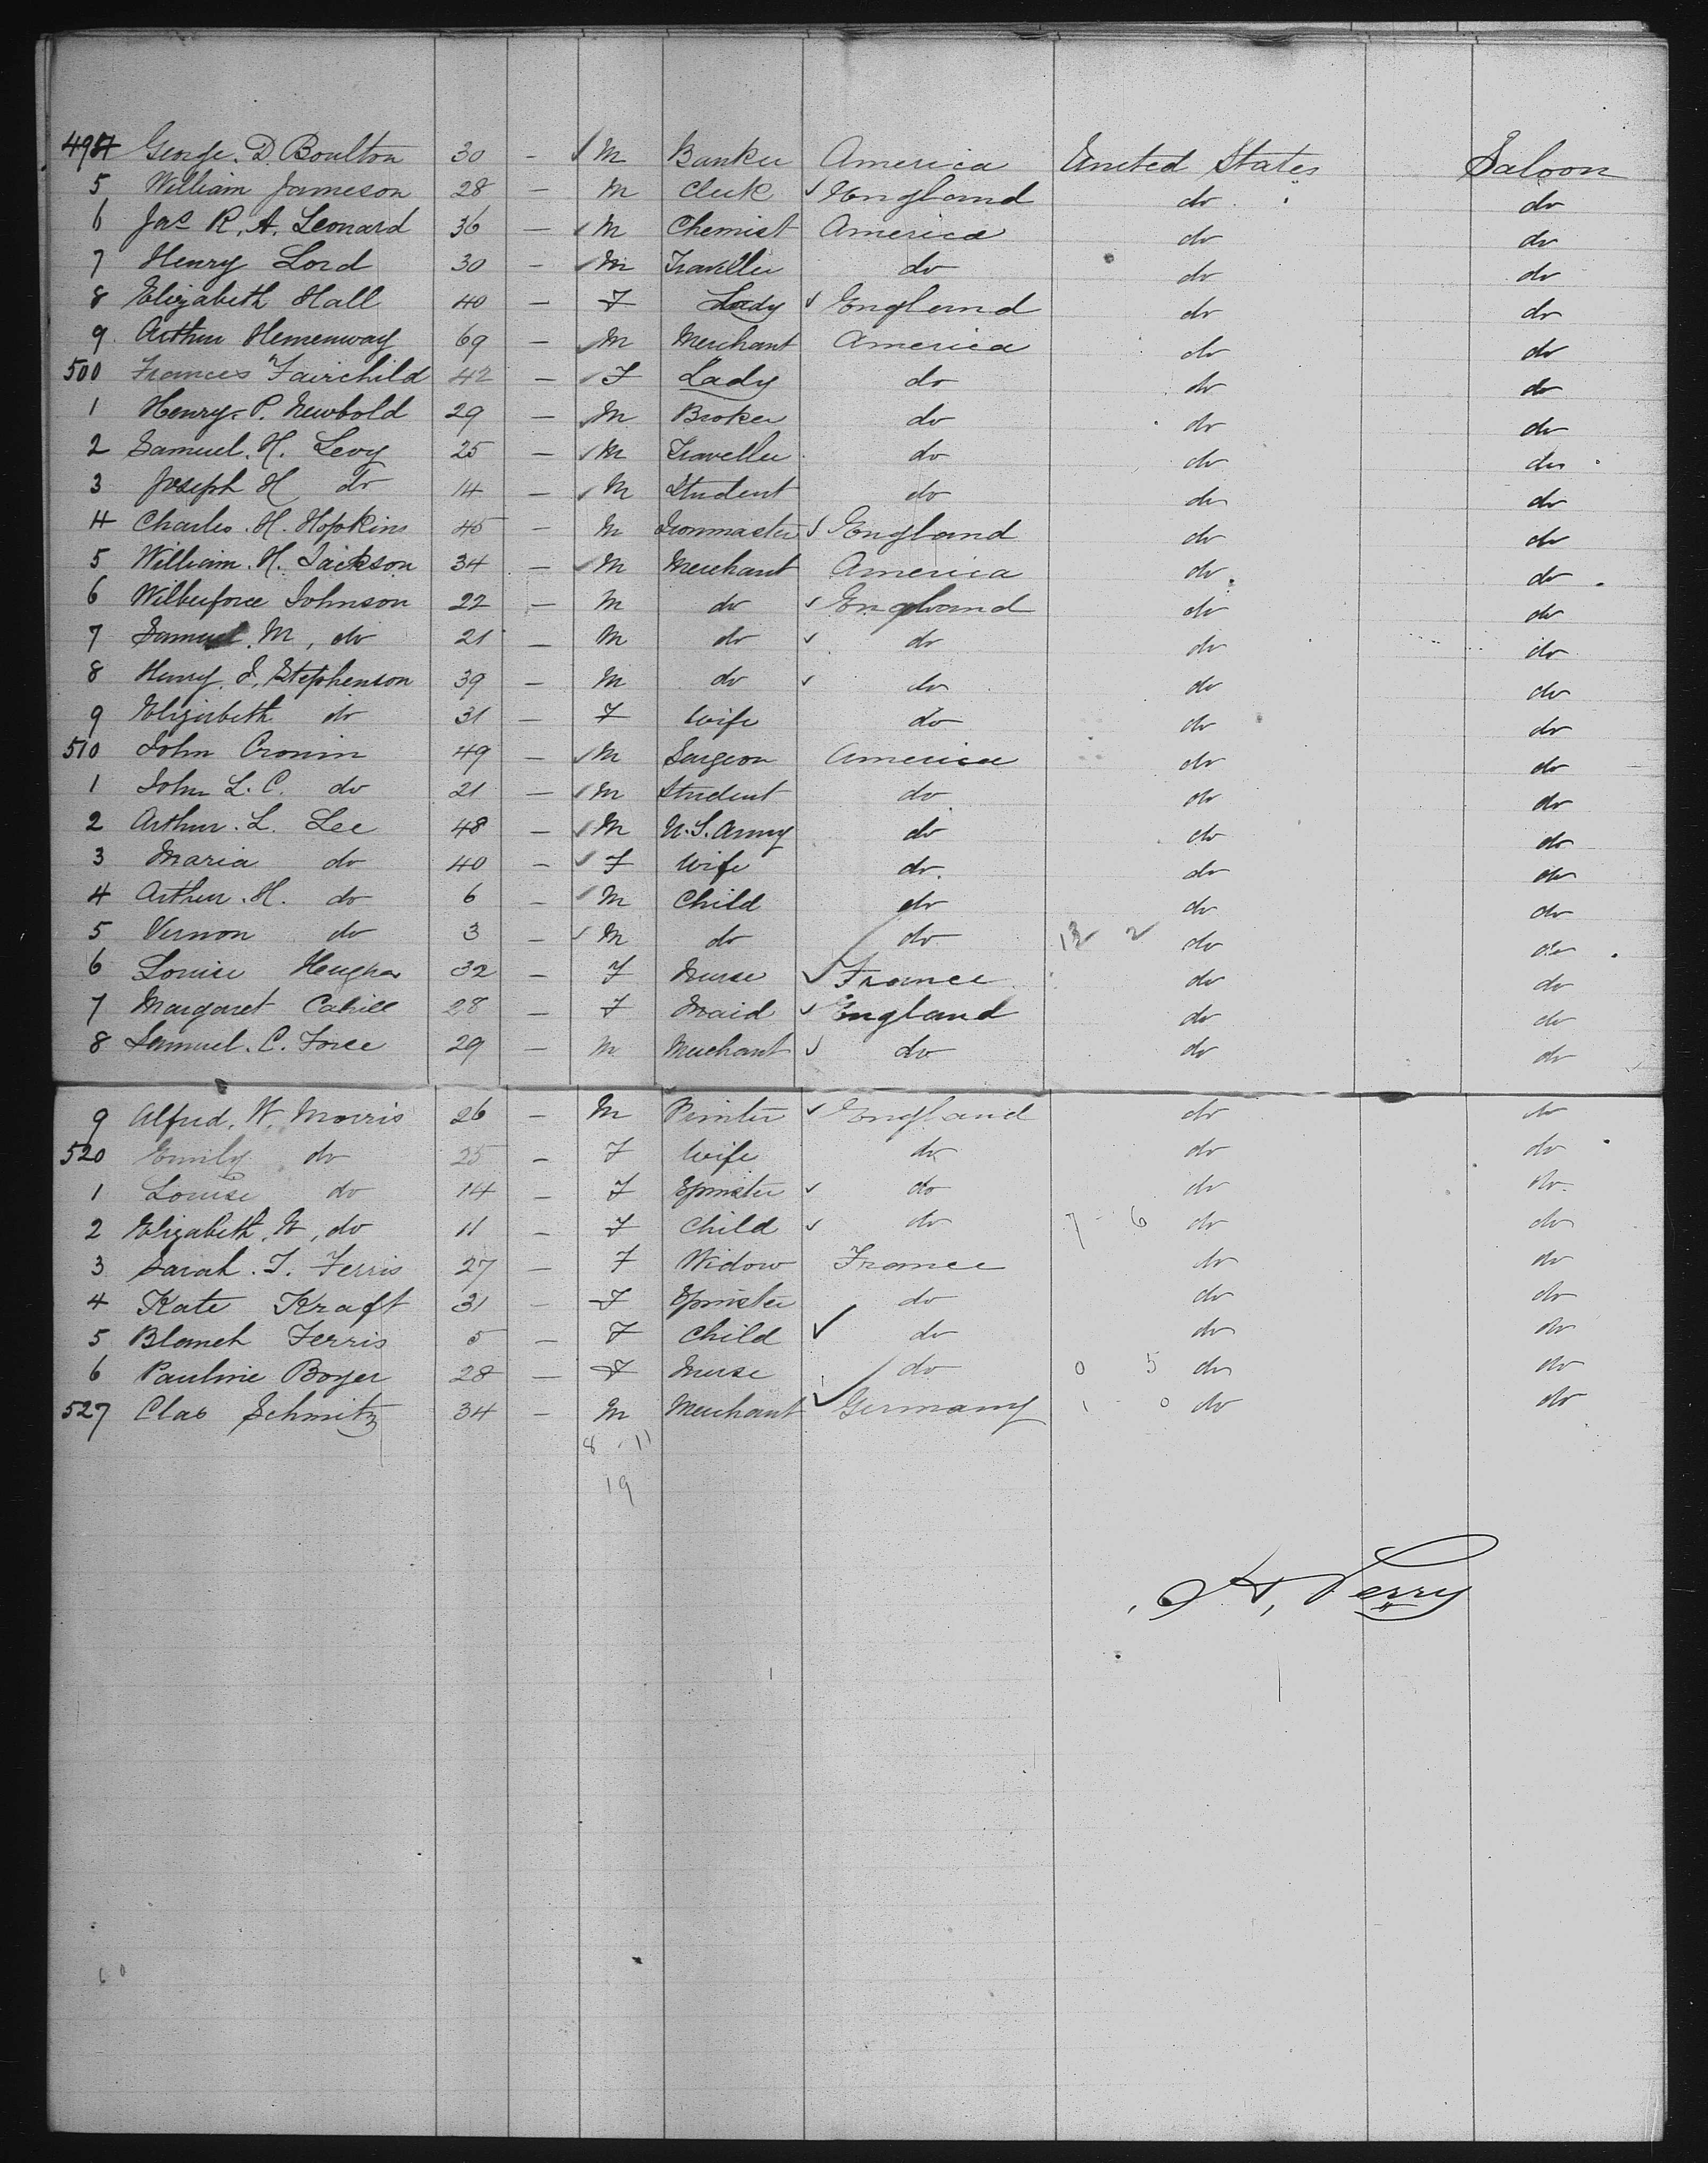 494 George. D. Boulton 30 - M Banker America United States Saloon
5 William Jameson 28 - M Clerk England do do
6 Jas R. A. Leonard 36 - M Chemist America do do
7 Henry Lord 30 - M Traveller do do do
8 Elizabeth Hall 40 - F Lady England do do
9 Arthur Hemenway 69 - M Merchant America do do
500 Frances Fairchild 42 - F Lady do do do
1 Henry. P. Newbold 29 - M Broker do do do
2 Samuel. H. Levy 25 - M Traveller do do do
3 Joseph H do 14 - M Student do do do
4 Charles. H. Hopkins 45 - M Ironmaster England do do
5 William. H. Jackson 34 - M Merchant America do do
6 Wilberforce Johnson 22 - M do England do do
7 Samuel. M, do 21 - M do do do do
8 Henry. J. Stephenson 39 - M do do do do
9 Elizabeth do 31 - F Wife do do do
510 John Cronin 49 - M Surgeon America do do
1 John L. C. do 21 - M Student do do do
2 Arthur. L. Lee 48 - M U.S. Army do do do
3 Maria do 40 - F Wife do do do
4 Arthur. H. do 6 - M Child do do do
5 Vernon do 3 - M do do 13 2 do do
6 Louise 32 - F Nurse France do do
7 Margaret Cahill 28 - F Maid England do do
8 Samuel. C. Force 29 - M Merchant do do do
9 Alfred. W. Morris 26 - M England do do
520 Emily do 25 - F Wife do do do
1 Louise do 14 - F Spinster do do do
2 Elizabeth. W, do 11 - F Child do 7 - 6 do do
3 Sarah. T. Ferris 27 - F Widow France do do
4 Kate Kraft 31 - F Spinster do do do
5 Blanch Ferris 5 - F Child do do do
6 Pauline Boyer 28 - F Nurse do 0 5 do do
527 Clas Schmitz 34 - M Merchant Germany 1 - 0 do do
8 . 11
19
H. Perry